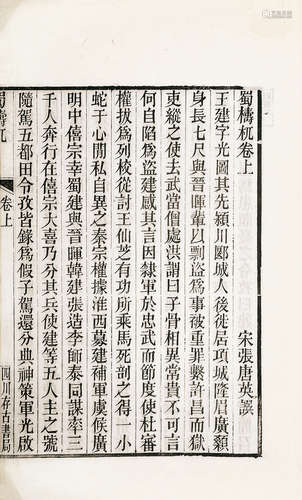 蜀檮杌卷上
宋張唐英譔
王建字光圖其先潁川郾城人後徙居項城隆眉廣顙
身長七尺與晉暉輩以剽盜爲事被重罪繫許昌而獄
吏縱之使去武當僧處洪謂曰子骨相異常貴不可言
何自陷爲盜建感其言因隸軍於忠武而節度使杜審
權拔爲列校從討王仙芝有功所乘馬死剖之得一小
蛇于心閒私自異之秦宗權據淮西募建補軍虞候廣
明中僖宗幸蜀建與晉暉韓建張造李師泰同謀率三
千人奔行在僖宗大喜乃分其兵使建等五人主之號
隨駕五都田令孜皆錄爲假子駕還分典神策軍光啟
蜀檮杌
卷上
四川存古書局